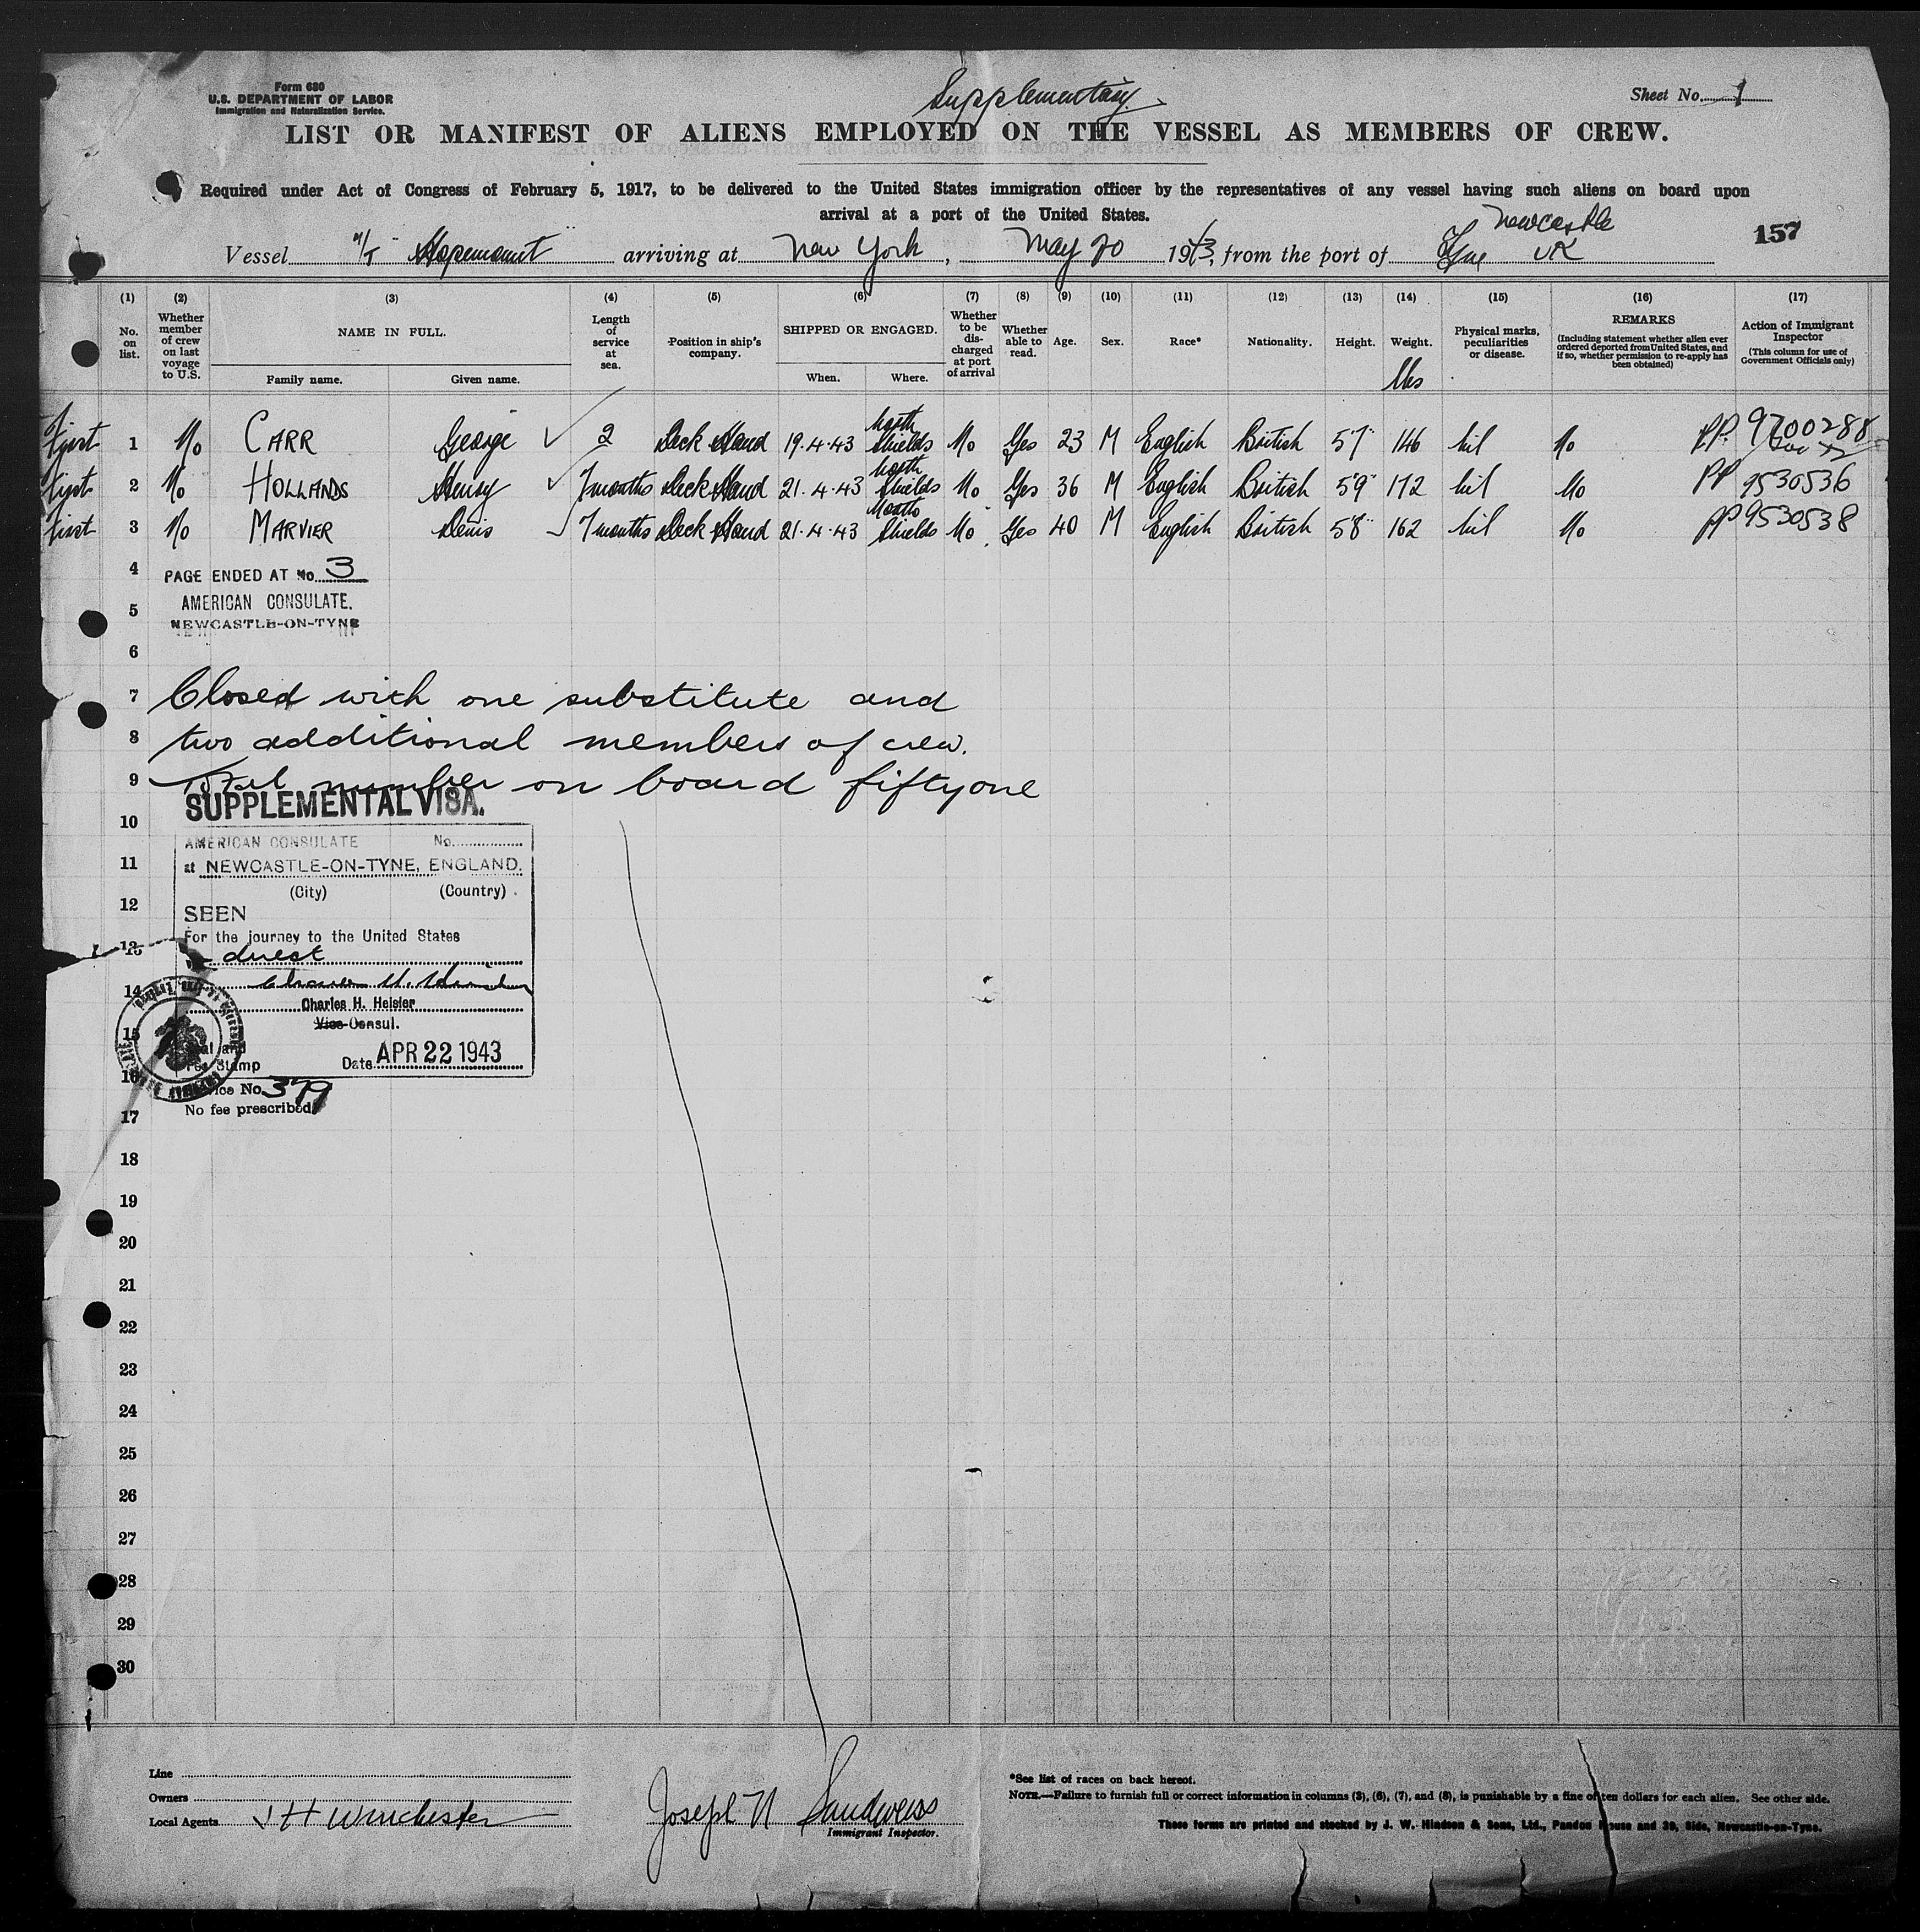 Form 680
U.S. DEPARTMENT OF LABOR
Immigration and Naturalization Service.
Supplementary
Sheet No. 1
LIST OR MANIFEST OF ALIENS EMPLOYED ON THE VESSEL AS MEMBERS OF CREW.
Required under Act of Congress of February 5, 1917, to be delivered to the United States immigration officer by the representatives of any vessel having such aliens on board upon
arrival at a port of the United States.
157
Newcastle
Vessel M/T "Hopemount" arriving at New York, May 20 1943, from the port of Tyne UK
(1) (2) (3) (4) (5) (6) (7) (8) (9) (10) (11) (12) (13) (14) (15) (16) (17)
No. on list.
Whether member of crew on last voyage to U.S.
NAME IN FULL.
Family name. Given name.
Length of service at sea.
Position in ship's company.
SHIPPED OR ENGAGED.
When. Where.
Whether to be discharged at port of arrival
Whether able to read.
Age.
Sex.
Race*
Nationality.
Height.
Weight.
lbs
Physical marks, peculiarities or disease.
REMARKS
(Including statement whether alien ever ordered deported from United States, and if so, whether permission to re-apply has been obtained)
Action of Immigrant Inspector
(This column for use of Government Officials only)
First 1 No CARR George 2 Deck Hand 19.4.43 North Shields No Yes 23 M English British 5'7" 146 nil No PP. 9700288
First 2 No HOLLANDS Henry 7 months Deck Hand 21.4.43 North Shields No Yes 36 M English British 5'9" 172 nil No PP 9530536
First 3 No MARVIER Denis 7 months Deck Hand 21.4.43 North Shields No Yes 40 M English British 5'8" 162 nil No PP 9530538
4 PAGE ENDED AT No. 3
AMERICAN CONSULATE.
5
NEWCASTLE-ON-TYNE
6
7 Closed with one substitute and
8 two additional members of crew.
9 Total number on board fiftyone
SUPPLEMENTAL VISA.
10
AMERICAN CONSULATE No.
11 at NEWCASTLE-ON-TYNE, ENGLAND.
(City) (Country)
12
SEEN
For the journey to the United States
13 direct
14
Charles H. Heisler
Vice Consul.
15
Seal and
Fee Stamp Date APR 22 1943
16
Service No. 379
No fee prescribed
17
18
19
20
21
22
23
24
25
26
27
28
29
30
Line
Owners
Local Agents J H Winchester
Joseph N Sandweiss
Immigrant Inspector.
*See list of races on back hereof.
NOTE.—Failure to furnish full or correct information in columns (3), (6), (7), and (8), is punishable by a fine of ten dollars for each alien. See other side.
These forms are printed and stocked by J. W. Hindson & Sons, Ltd., Pandon House and 29, Side, Newcastle-on-Tyne.